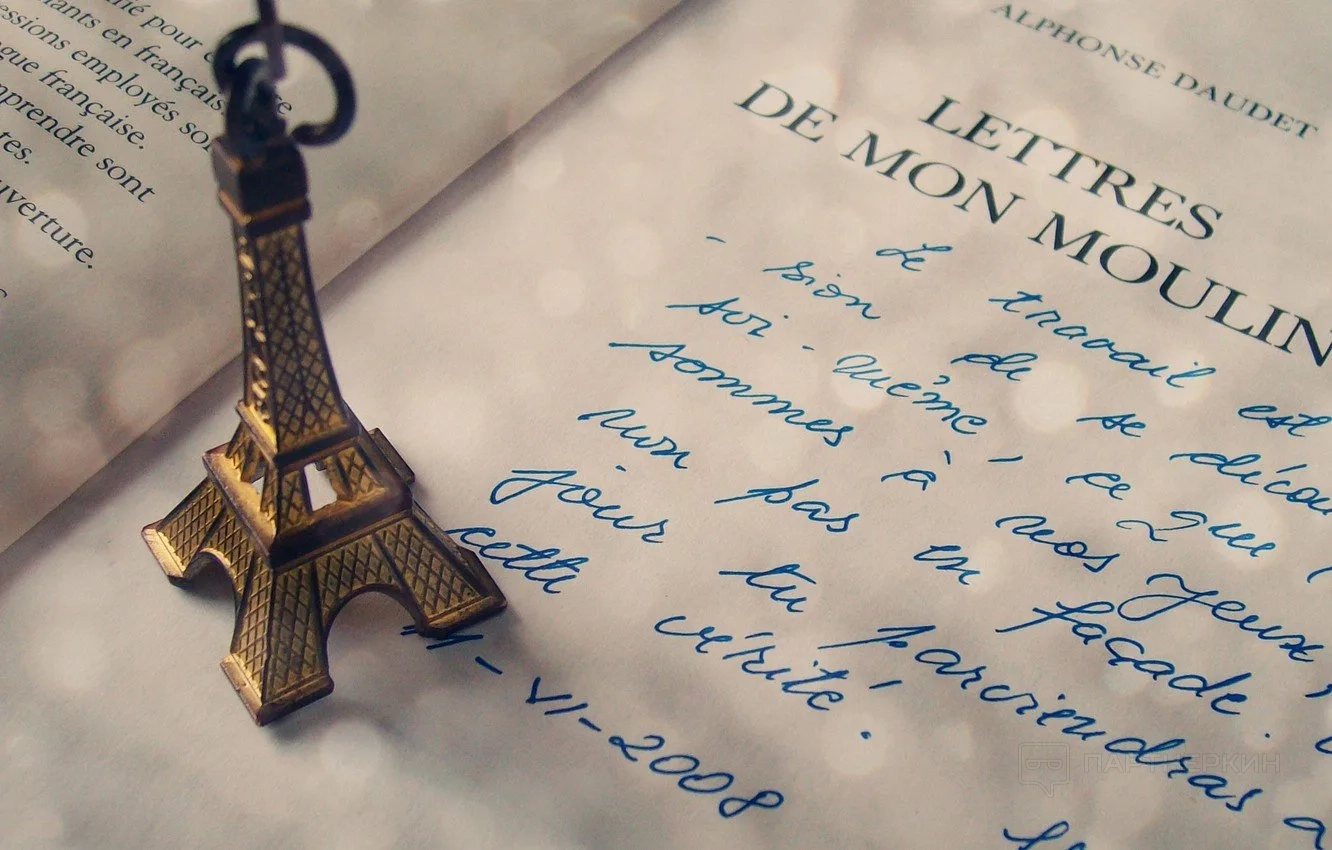 ié pour
iants en français
essions employés so
gue française.
mprendre sont
tes.
uverture.
ALPHONSE DAUDET
LETTRES
DE MON MOULIN
Le travail est
- sion de se décou
soi-même, ce que
sommes à nos yeux,
non pas en façade.
jour tu parviendras a
cette vérité.
- VI - 2008
ПАРТНЕРКИН